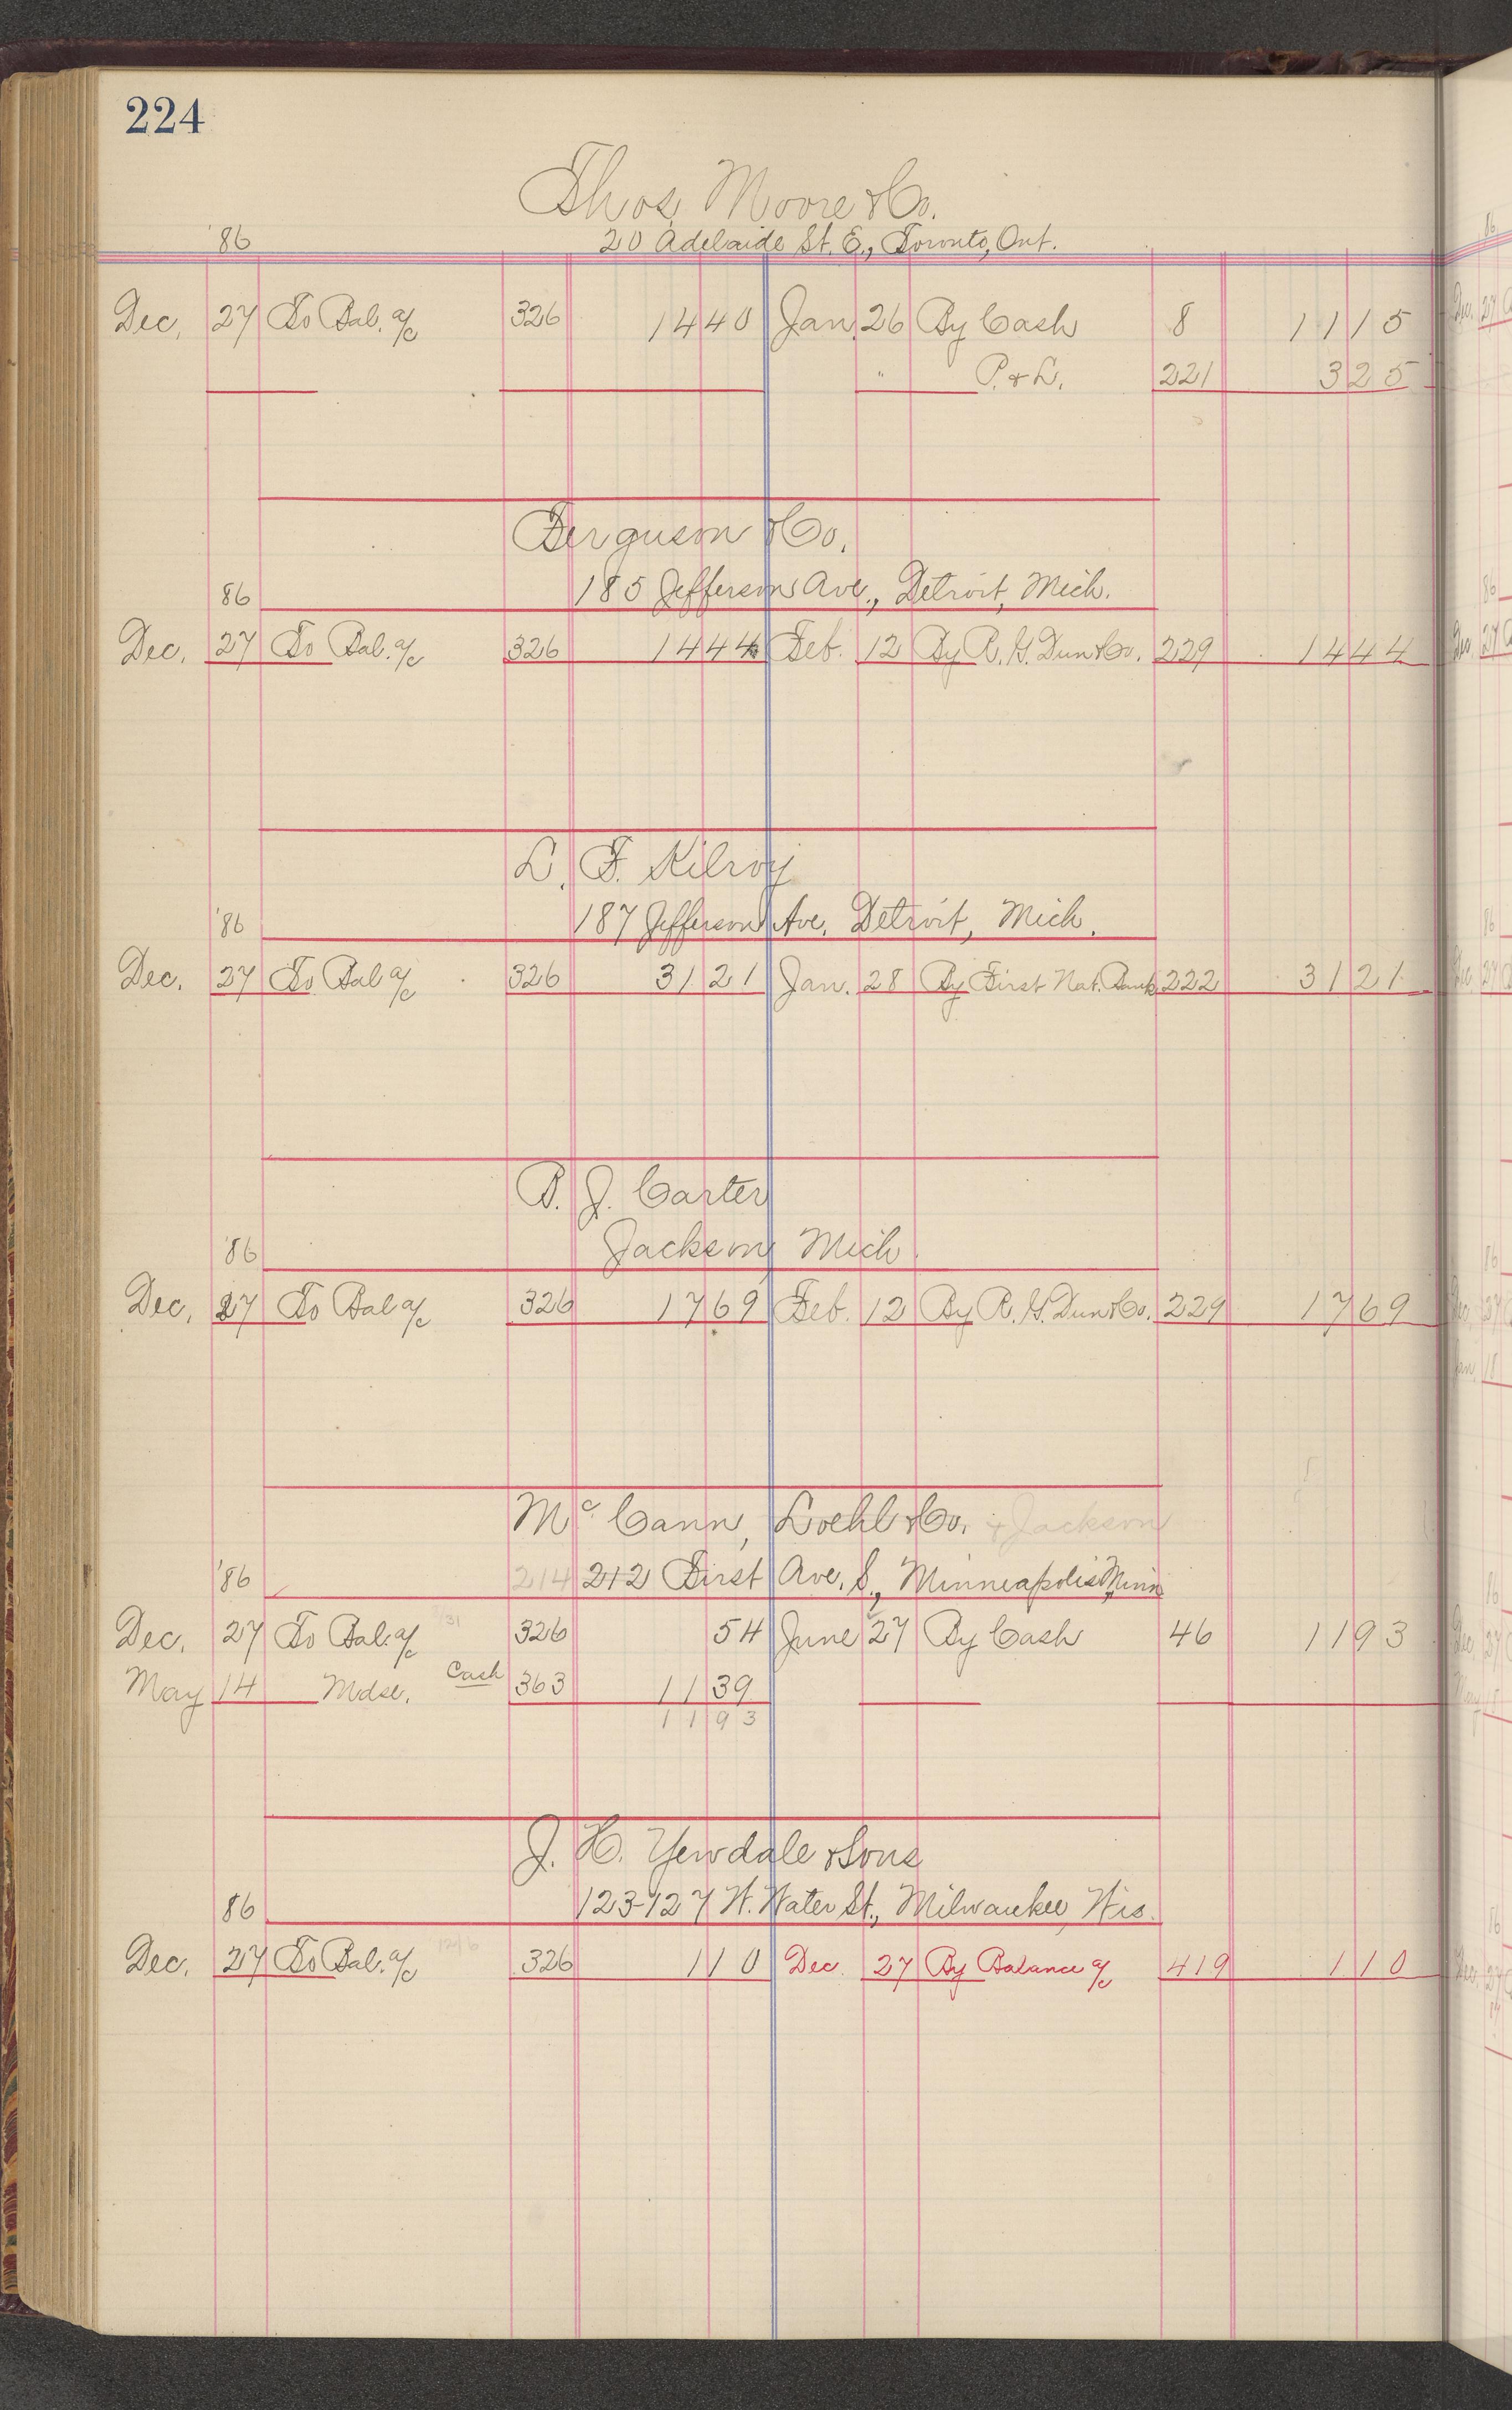 224
Thos. Moore & Co.
'86 20 Adelaide St. E., Toronto, Ont.
Dec. 27 To Bal. a/c 326 14 40 Jan. 26 By Cash 8 11 15
" P. & L. 221 3 25
Ferguson & Co.
86 185 Jefferson Ave., Detroit, Mich.
Dec. 27 To Bal. a/c 326 14 44 Feb. 12 By R. G. Dun & Co. 229 14 44
L. F. Kilroy
'86 187 Jefferson Ave. Detroit, Mich.
Dec. 27 To Bal a/c 326 31 21 Jan. 28 By First Nat. Bank 222 31 21
B. J. Carter
'86 Jackson Mich.
Dec. 27 To Bal a/c 326 17 69 Feb. 12 By R. G. Dun & Co. 229 17 69
Mc Cann, Loehl & Co. & Jackson
'86 214 212 First Ave. S., Minneapolis, Minn
Dec. 27 To Bal. a/c 326 54 June 27 By Cash 46 11 93
May 14 Mdse. Cash 363 11 39
11 93
J. H. Yewdale & Sons
86 123-127 W. Water St., Milwaukee, Wis.
Dec. 27 To Bal. a/c 326 1 10 Dec. 27 By Balance a/c 419 1 10